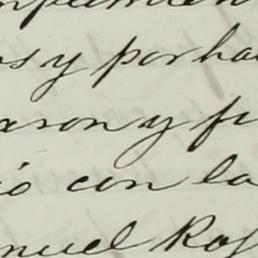 os y por ha
aron y fu
ió con la
nuel Ro